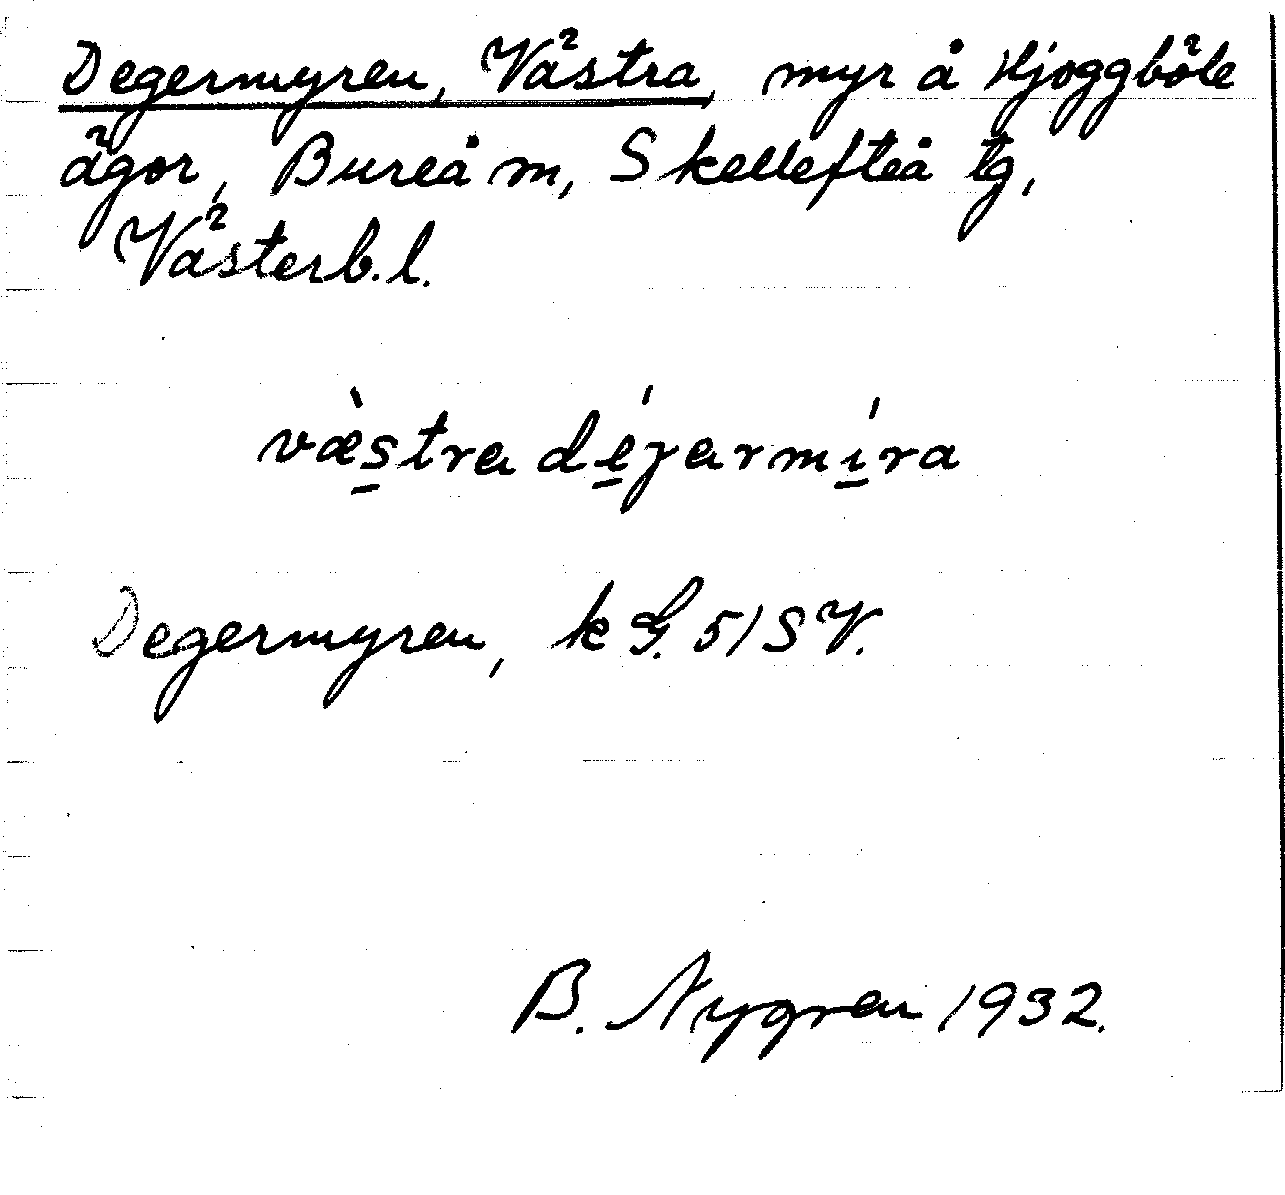 Degermyren, Västra, myr å Hjoggböle
ägor, Bureå m, Skellefteå tg,
Västerb.l.
væ̀stra déjarmı́ra
Degermyren, k G. 51 SV.
B. Nygren 1932.